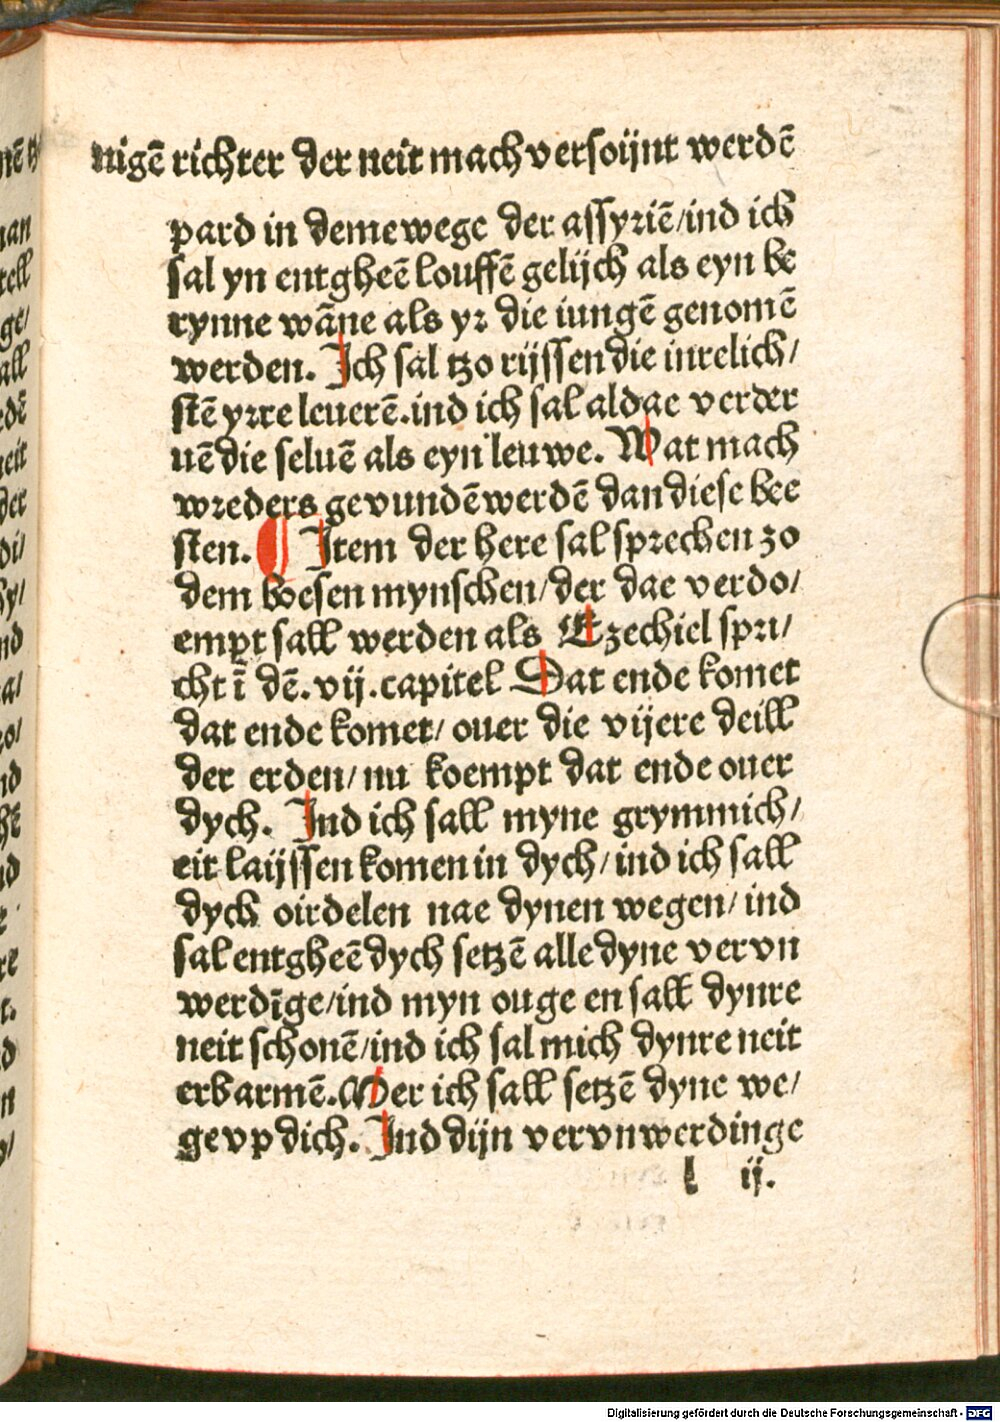 nigē richter der neit mach versoijnt werdē
pard in deme wege der assyriē/ind ich
sal yn entgheē louffē gelijch als eyn be
rynne wāne als yr die iungē genomē
werden. Ich sal tzo rijssen die inrelich/
stē yrre leuerē.ind ich sal aldae verder
uē die seluē als eyn leuwe. Wat mach
wreders gevundē werdē dan diese bee
sten. ¶ Item der here sal sprechen zo
dem boesen mynschen/der dae verdo/
empt sall werden als Ezechiel spri/
cht ī dē.vij.capitel Dat ende komet
dat ende komet/ ouer die vijere deill
der erden/nu koempt dat ende ouer
dych. Ind ich sall myne grymmich/
eit laijssen komen in dych/ind ich sall
dych oirdelen nae dynen wegen/ind
sal entgheē dych setzē alle dyne vervn
werdīge/ind myn ouge en sall dynre
neit schonē/ind ich sal mich dynre neit
erbarmē.Mer ich sall setzē dyne we/
ge vp dich. Ind dijn vervnwerdinge
l ij.
Digitalisierung gefördert durch die Deutsche Forschungsgemeinschaft - DFG